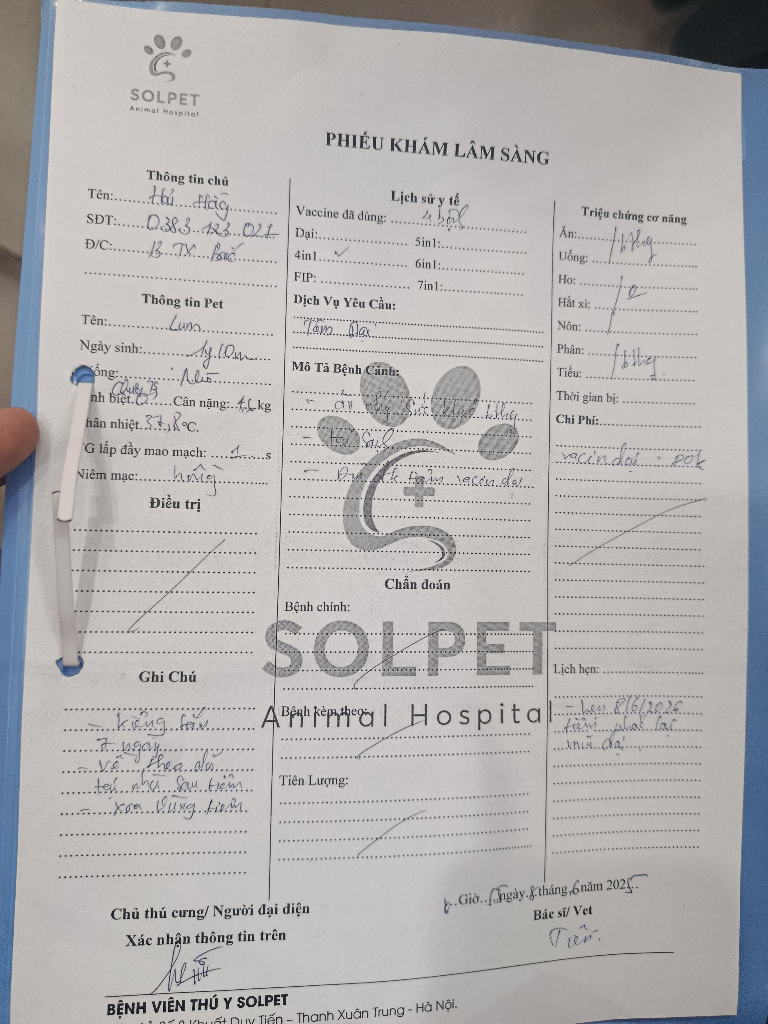 SOLPET
Animal Hospital
PHIẾU KHÁM LÂM SÀNG
Thông tin chủ
Tên:
SĐT: 0383 123 021
Đ/C: B TX
Thông tin Pet
Tên: Lum
Ngày sinh: 1y 10m
Cân nặng: kg
hân nhiệt 37,8 °C.
G lấp đầy mao mạch: 1 s
Niêm mạc: hồng
Điều trị
Ghi Chú
- kiêng tắm
7 ngày
- về theo dõi
tại nhà sau tiêm
- xoa vùng tiêm
Lịch sử y tế
Vaccine đã dùng: 4 bệnh
Dại: 5in1:
4in1 ✓ 6in1:
FIP: 7in1:
Dịch Vụ Yêu Cầu:
Tiêm Dại
Mô Tả Bệnh Cảnh:
- ăn uống bthg
-
- tiêm vacin dại
Chẩn đoán
Bệnh chính:
SOLPET
Animal Hospital
Bệnh kèm theo:
Tiên Lượng:
Triệu chứng cơ năng
Ăn: bthg
Uống:
Ho: 0
Hắt xì:
Nôn:
Phân: bthg
Tiểu:
Thời gian bị:
Chi Phí:
vacin dại: 80k
Lịch hẹn:
- hẹn 8/6/2026
tiêm phác lại
mũi dại
Giờ ngày 8 tháng 6 năm 2025
Bác sĩ/ Vet
Tiến
Chủ thú cưng/ Người đại diện
Xác nhận thông tin trên
BỆNH VIỆN THÚ Y SOLPET
Khuất Duy Tiến – Thanh Xuân Trung - Hà Nội.